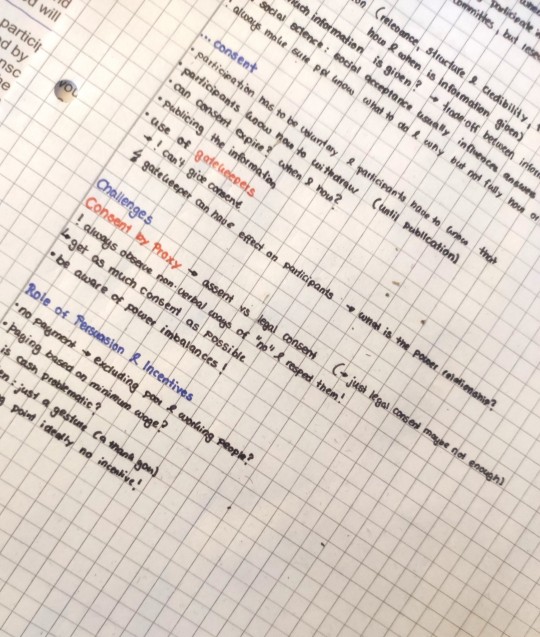 nd
d will
particip
ed by
onsc
e
you
participate
committee, but
on (relevance, structure & credibility,
how & when is information given)
much information is given? → tradeoff between
social science: social acceptance usually influences answers
always make sure ppl know what to do & why but not fully how or
... consent
• participation has to be voluntary & participants have to know that
• participants know how to withdraw (until publication)
• can consent expire? when & how?
• publicing the information
• use of gatekeepers
→ ! can't give consent
↳ gatekeeper can have effect on participants → what is the power relationship?
Challenges
Consent by Proxy → assent vs legal consent (→ just legal consent maybe not enough)
! always observe non-verbal ways of "no" & respect them!
↳ get as much consent as possible
• be aware of power imbalances!
Role of Persuasion & Incentives
• no payment → excluding poor & working people?
• paying based on minimum wage?
is cash problematic?
en: just a gesture (a thank you)
g point ideally no incentive!